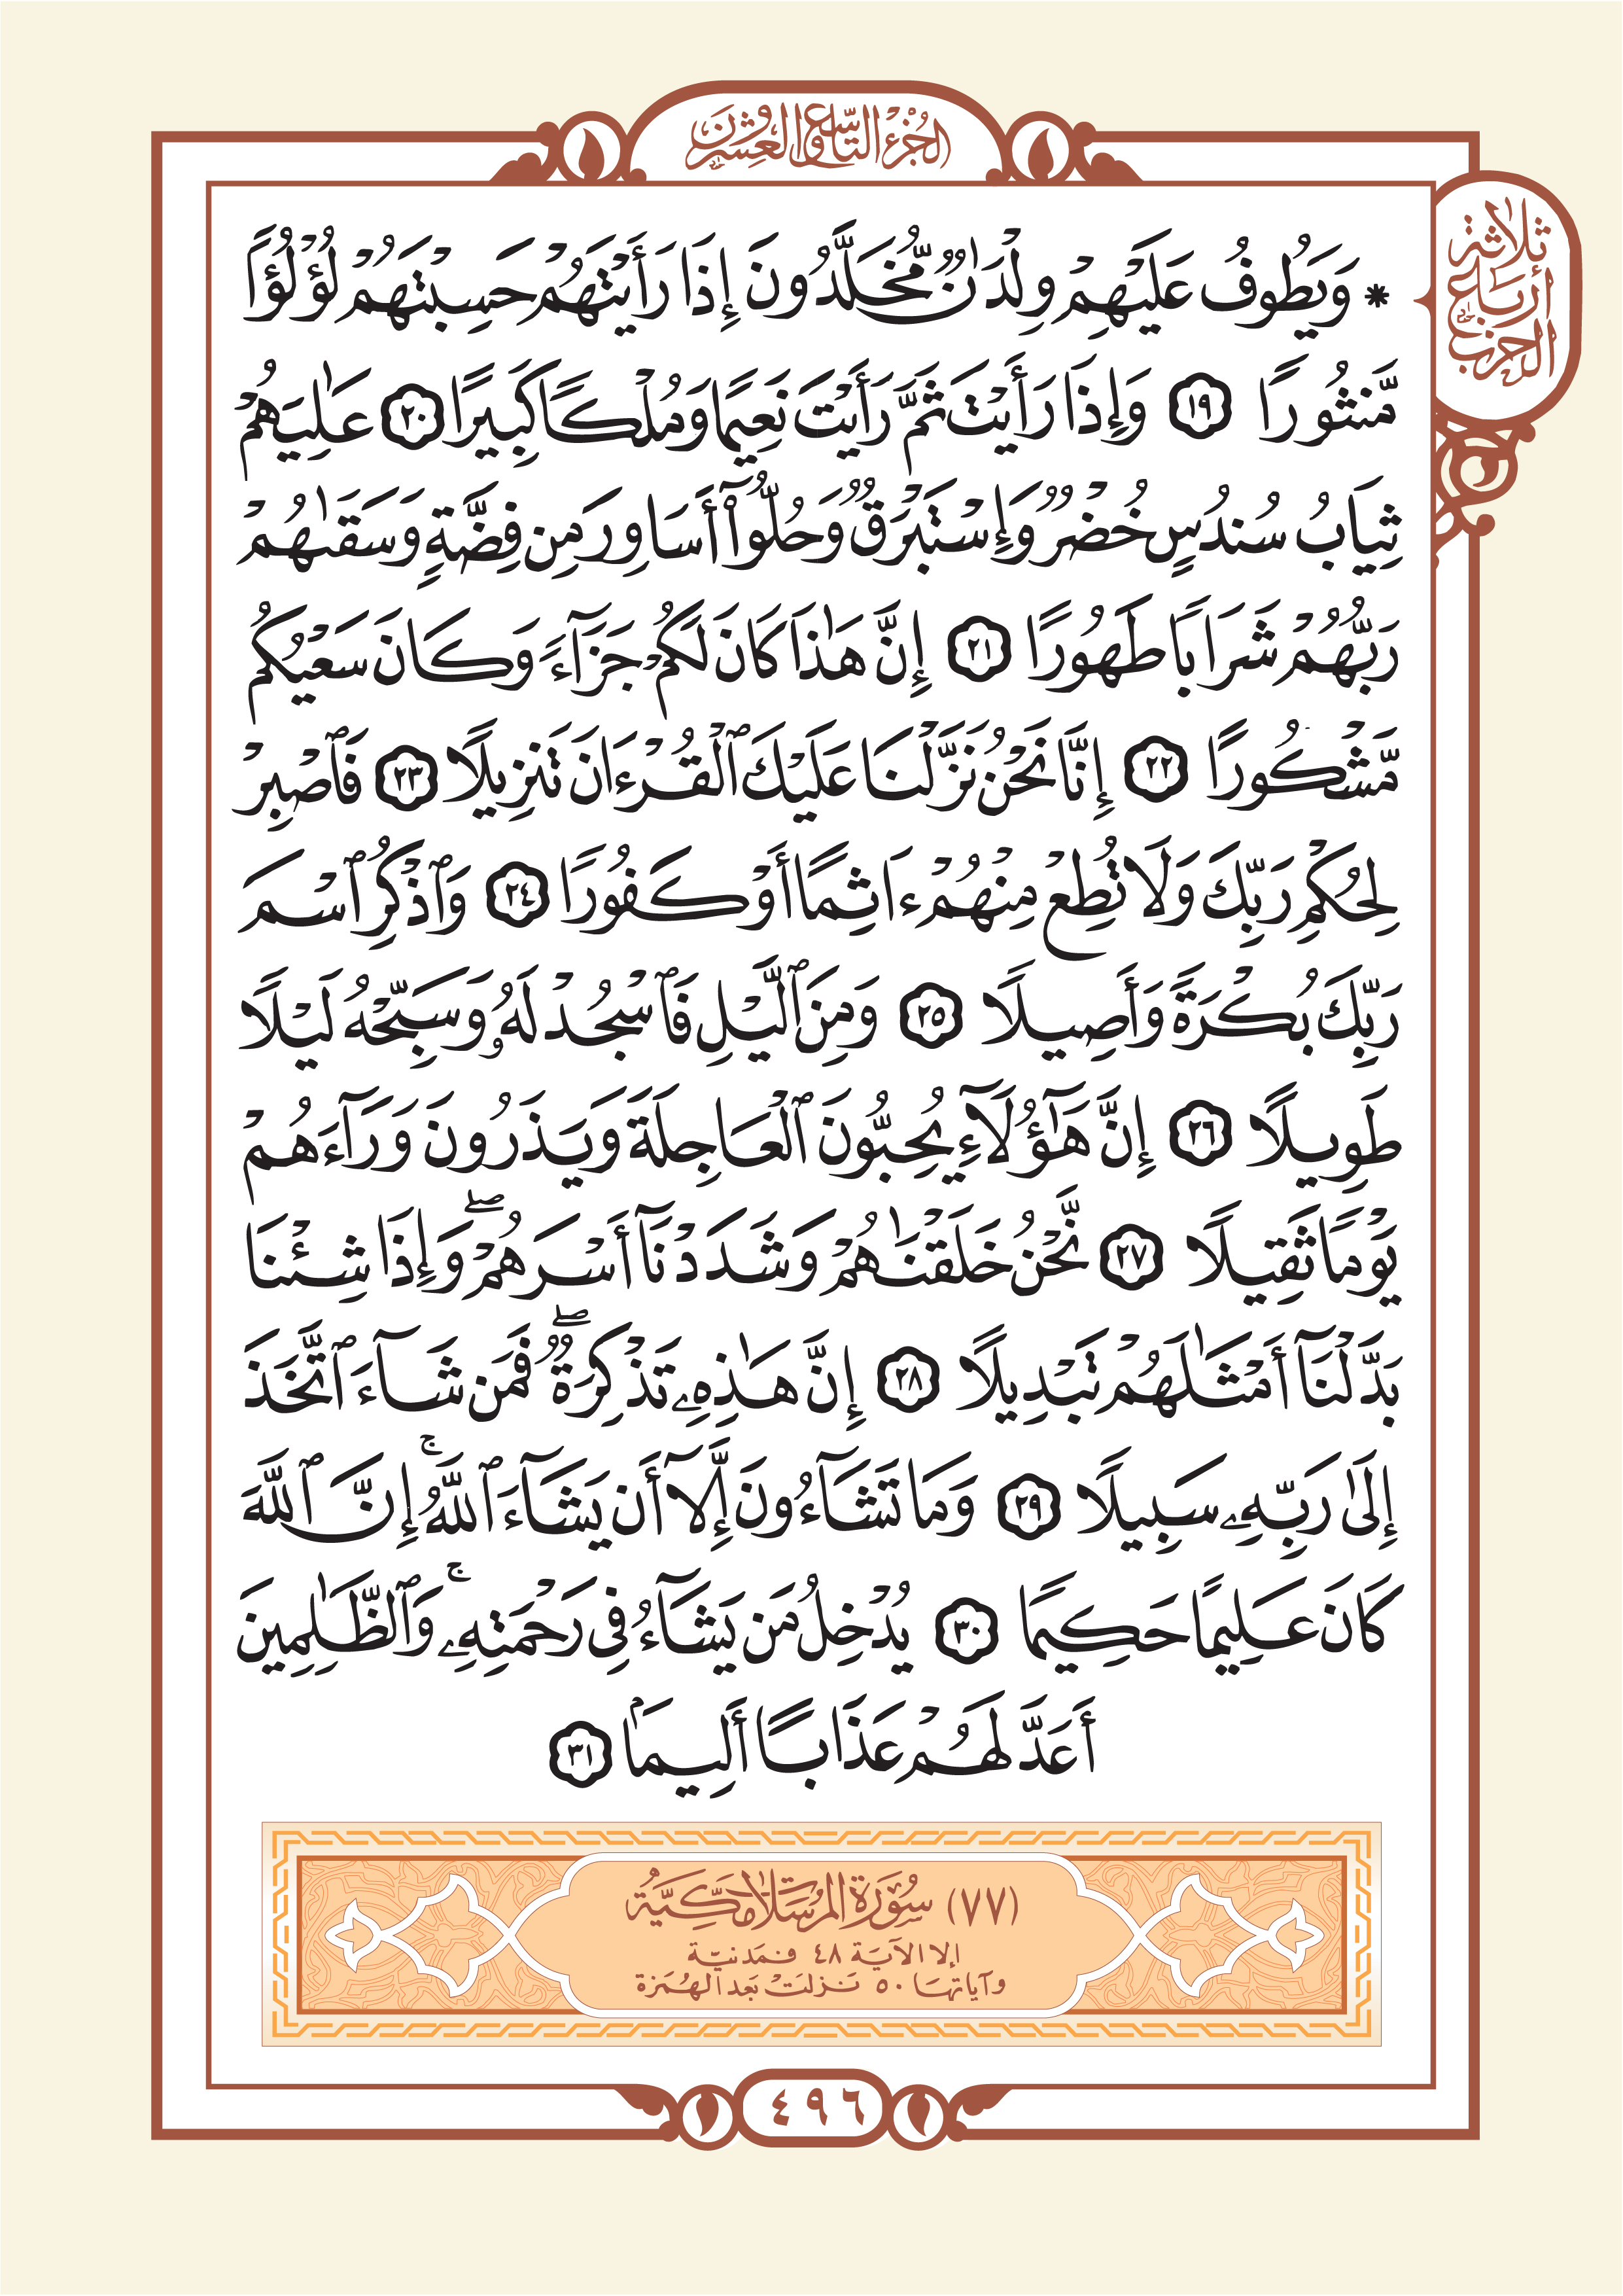 الجزء التاسع والعشرون
ثلاثة
أرباع
الحزب
* وَيَطُوفُ عَلَيْهِمْ وِلْدَٰنٌ مُّخَلَّدُونَ إِذَا رَأَيْتَهُمْ حَسِبْتَهُمْ لُؤْلُؤًا
مَّنثُورًا ١٩ وَإِذَا رَأَيْتَ ثَمَّ رَأَيْتَ نَعِيمًا وَمُلْكًا كَبِيرًا ٢٠ عَٰلِيَهُمْ
ثِيَابُ سُندُسٍ خُضْرٌ وَإِسْتَبْرَقٌ وَحُلُّوٓا۟ أَسَاوِرَ مِن فِضَّةٍ وَسَقَىٰهُمْ
رَبُّهُمْ شَرَابًا طَهُورًا ٢١ إِنَّ هَٰذَا كَانَ لَكُمْ جَزَآءً وَكَانَ سَعْيُكُم
مَّشْكُورًا ٢٢ إِنَّا نَحْنُ نَزَّلْنَا عَلَيْكَ ٱلْقُرْءَانَ تَنزِيلًا ٢٣ فَٱصْبِرْ
لِحُكْمِ رَبِّكَ وَلَا تُطِعْ مِنْهُمْ ءَاثِمًا أَوْ كَفُورًا ٢٤ وَٱذْكُرِ ٱسْمَ
رَبِّكَ بُكْرَةً وَأَصِيلًا ٢٥ وَمِنَ ٱلَّيْلِ فَٱسْجُدْ لَهُۥ وَسَبِّحْهُ لَيْلًا
طَوِيلًا ٢٦ إِنَّ هَٰٓؤُلَآءِ يُحِبُّونَ ٱلْعَاجِلَةَ وَيَذَرُونَ وَرَآءَهُمْ
يَوْمًا ثَقِيلًا ٢٧ نَّحْنُ خَلَقْنَٰهُمْ وَشَدَدْنَآ أَسْرَهُمْ ۖ وَإِذَا شِئْنَا
بَدَّلْنَآ أَمْثَٰلَهُمْ تَبْدِيلًا ٢٨ إِنَّ هَٰذِهِۦ تَذْكِرَةٌ ۖ فَمَن شَآءَ ٱتَّخَذَ
إِلَىٰ رَبِّهِۦ سَبِيلًا ٢٩ وَمَا تَشَآءُونَ إِلَّآ أَن يَشَآءَ ٱللَّهُ ۚ إِنَّ ٱللَّهَ
كَانَ عَلِيمًا حَكِيمًا ٣٠ يُدْخِلُ مَن يَشَآءُ فِى رَحْمَتِهِۦ ۚ وَٱلظَّٰلِمِينَ
أَعَدَّ لَهُمْ عَذَابًا أَلِيمَۢا ٣١
(٧٧) سُورَة المرسَلات مَكِيَّة
إلا الآية ٤٨ فمدنيّة
وآياتها ٥٠ نزلت بعد الهُمَزة
٤٩٦